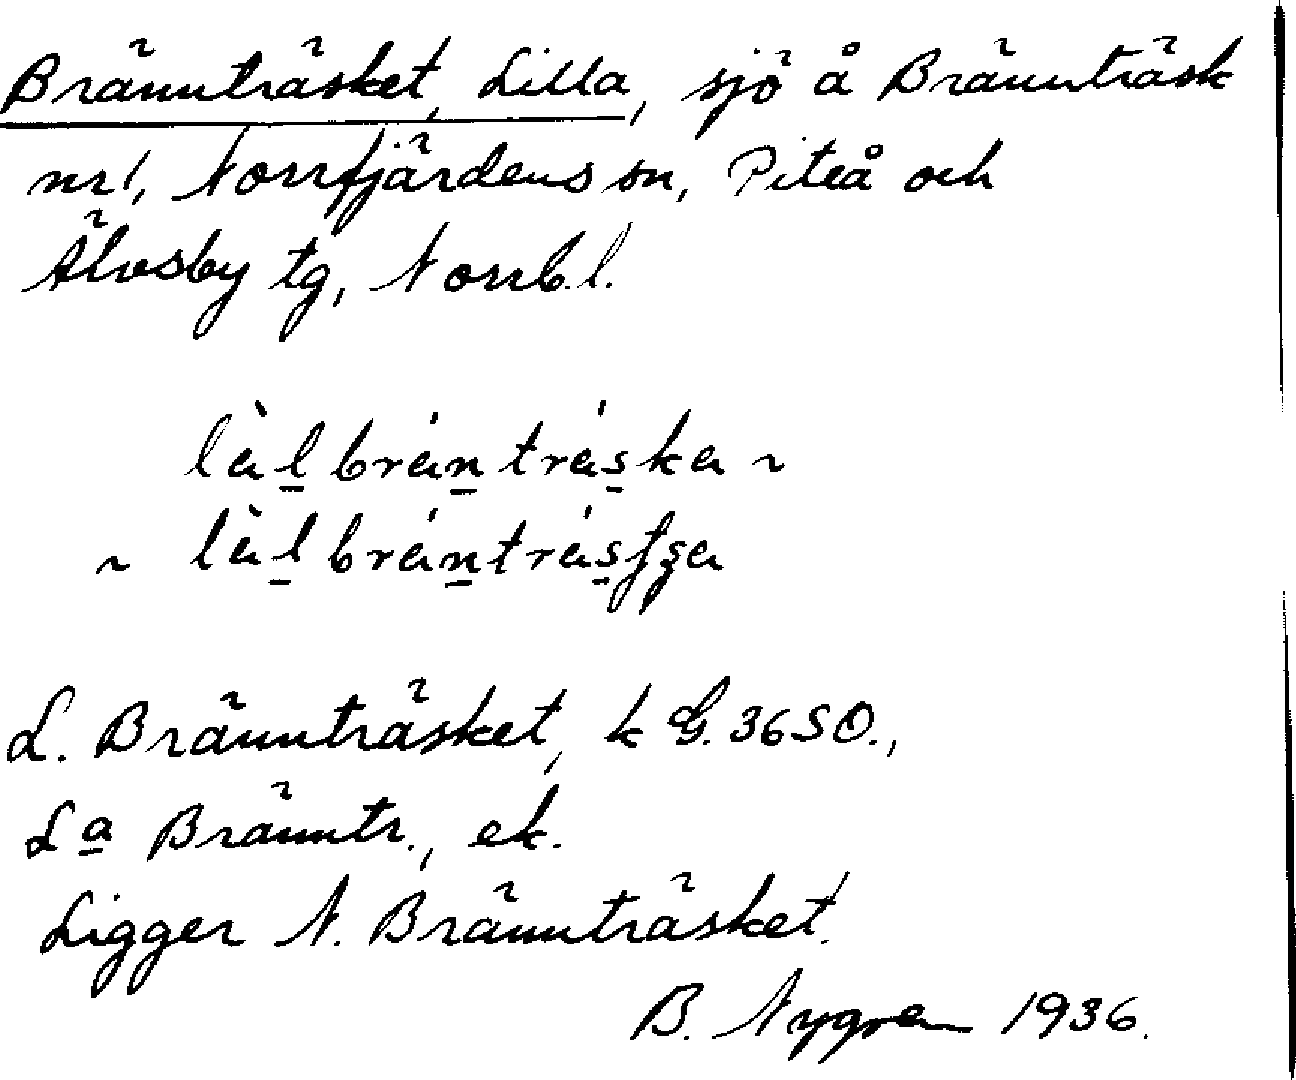 Brännträsket, Lilla, sjö å Brännträsk
nr 1, Norrfjärdens sn, Piteå och
Älvsby tg, Norrb.l.
làl bránträ́ska ~
~ làl bránträ́sʃʂa
L. Brännträsket, k G. 36 SO.,
La Bränntr., ek.
Ligger N. Brännträsket.
B. Nygren 1936.